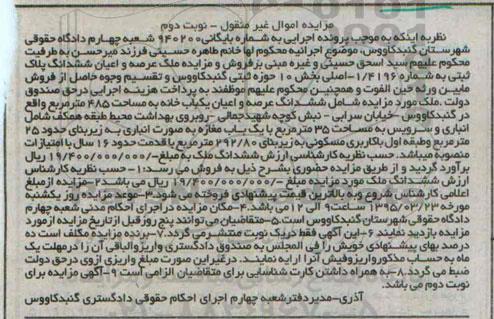 مزایده اموال غیر منقول - نوبت دوم
نظر به اینکه به موجب پرونده اجرایی به شماره بایگانی ۹۴۰۲۰۰ شعبه چهارم دادگاه حقوقی
شهرستان گنبدکاووس، موضوع اجرائیه محکوم لها خانم طاهره حسینی فرزند میرحسن به طرفیت
محکوم علیهم سید اسحق حسینی و غیره مبنی بر فروش و مزایده ملک عرصه و اعیان ششدانگ پلاک
ثبتی به شماره ۱/۴۱۹۶-اصلی بخش ۱۰ حوزه ثبتی گنبدکاووس و تقسیم وجوه حاصل از فروش
مابین ورثه حین الفوت و همچنین محکوم علیهم موظفند به پرداخت هزینه اجرایی درحق صندوق
دولت .ملک مورد مزایده شامل ششدانگ عرصه و اعیان یکباب خانه به مساحت ۴۸۵ مترمربع واقع
در گنبدکاووس -خیابان سرابی - نبش کوچه شهیدجمالی -روبروی بهداشت محیط طبقه همکف شامل
انباری و سرویس به مساحت ۳۵ مترمربع با یک باب مغازه به صورت انباری به زیربنای حدود ۲۵
مترمربع وطبقه اول باکاربری مسکونی به زیربنای ۲۹۲/۸۰ مترمربع با قدمت حدود ۱۶ سال با امتیازات
منصوبه میباشد. حسب نظریه کارشناسی ارزش ششدانگ ملک به مبلغ-/۱۹/۴۰۰/۰۰۰/۰۰۰ ریال
برآورد گردید و از طریق مزایده حضوری بشرح ذیل به فروش می رسد:۱- حسب نظریه کارشناس
ارزش ششدانگ ملک مورد مزایده مبلغ -/۱۹/۴۰۰/۰۰۰/۰۰۰ ریال می باشد۲-مزایده ازمبلغ
اعلامی کارشناس شروع و به بالاترین قیمت پیشنهادی فروخته می شود.۳-موعد مزایده روز یکشنبه
مورخه ۱۳۹۵/۰۳/۲۳ ساعت۹ الی ۱۲ می باشد.۴-مکان مزایده در اجرای احکام مدنی شعبه چهارم
دادگاه حقوقی شهرستان گنبدکاووس است.۵-متقاضیان می توانند پنج روز قبل از تاریخ مزایده از مورد
مزایده بازدید نمایند ۶-این آگهی فقط دریک نوبت منتشرمی گردد.۷-برنده مزایده مکلف است ده
درصد بهای پیشنهادی خویش را فی المجلس به صندوق دادگستری واریزوالباقی آن را درمهلت یک
ماه به حساب مذکور واریزوفیش آنرا ارایه نمایند. درغیراین صورت مبلغ واریزی ازوی درحق دولت
ضبط می گردد.۸-به همراه داشتن کارت شناسایی برای متقاضیان الزامی است ۹-آگهی مزایده برای
نوبت دوم می باشد.
آذری-مدیردفترشعبه چهارم اجرای احکام حقوقی دادگستری گنبدکاووس